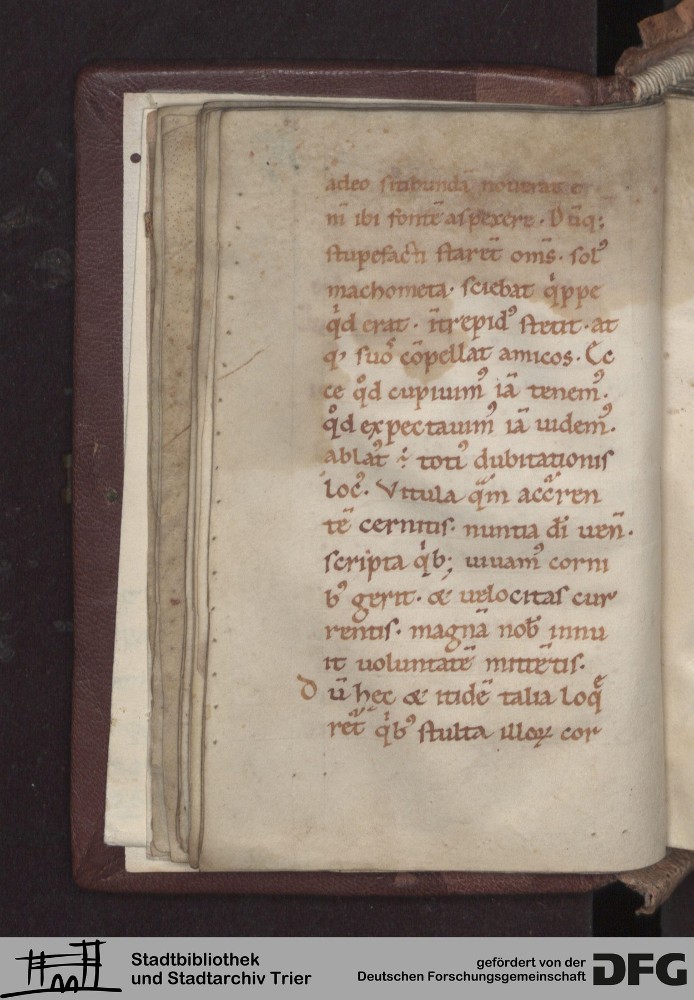 adeo sitibundā nouerat e
nī ibi fontē aspexere. Dūq;
stupefacti starēt om̄s. sol᷒
machometa. sciebat qͥppe
qͥd erat. īt̄repid᷒ stetit. at
q᷒ suoͦ cōpellat amicos. Ec
ce qͦd cupiuim᷒ iā tenem᷒.
qͦd expectauim᷒ iā uidem᷒.
ablat᷒ ÷ toti᷒ dubitationis
loc᷒. Vitula qͣ̄m accͨren
tē cernitis. nuntia dī uen̄.
scripta qͥb; uiuam᷒ corni
b᷒ gerit. & uelocitas cur
rentis. magnā nob̄ innu
it uoluntatē mittētis.
Dū hec & itidē talia loqͤ
ret̄ qͥb᷒ stulta illoꝝ cor
Stadtbibliothek
und Stadtarchiv Trier
gefördert von der
Deutschen Forschungsgemeinschaft
DFG